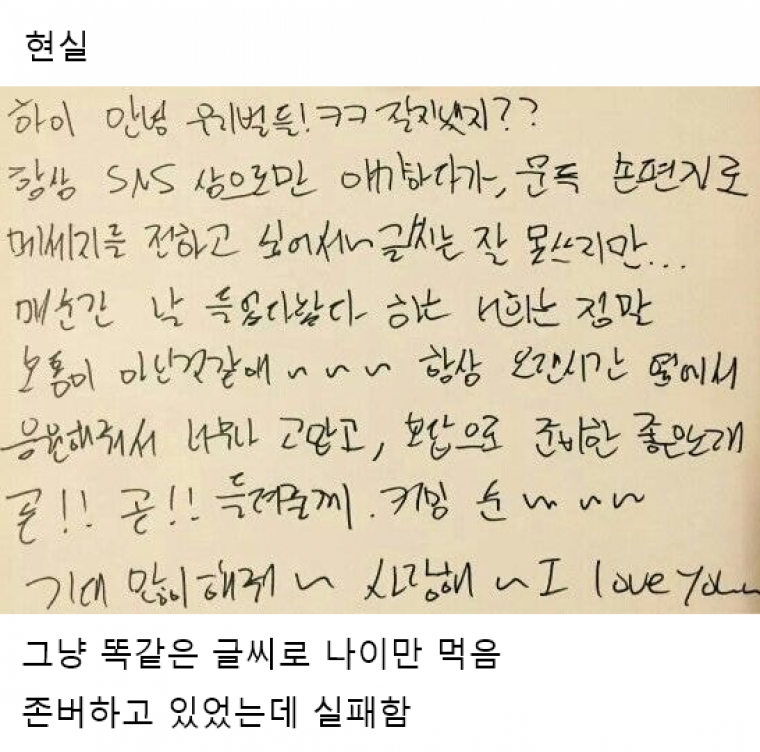 현실
하이 안녕 우리별들! ㅋㅋ 잘지냈지??
항상 SNS 상으로만 얘기하다가, 문득 손편지로
메세지를 전하고 싶어서~ 글씨는 잘 못쓰지만...
매순간 날 들었다놨다 하는 너희는 정말
보통이 아닌것같애 ~ ~ ~ 항상 오랜시간 옆에서
응원해줘서 너무나 고맙고, 보답으로 준비한 좋은노래
곧!! 곧!! 들려줄께. 커밍 순 ~ ~ ~
기대 많이 해줘 ~ 사랑해 ~ I love you~
그냥 똑같은 글씨로 나이만 먹음
존버하고 있었는데 실패함